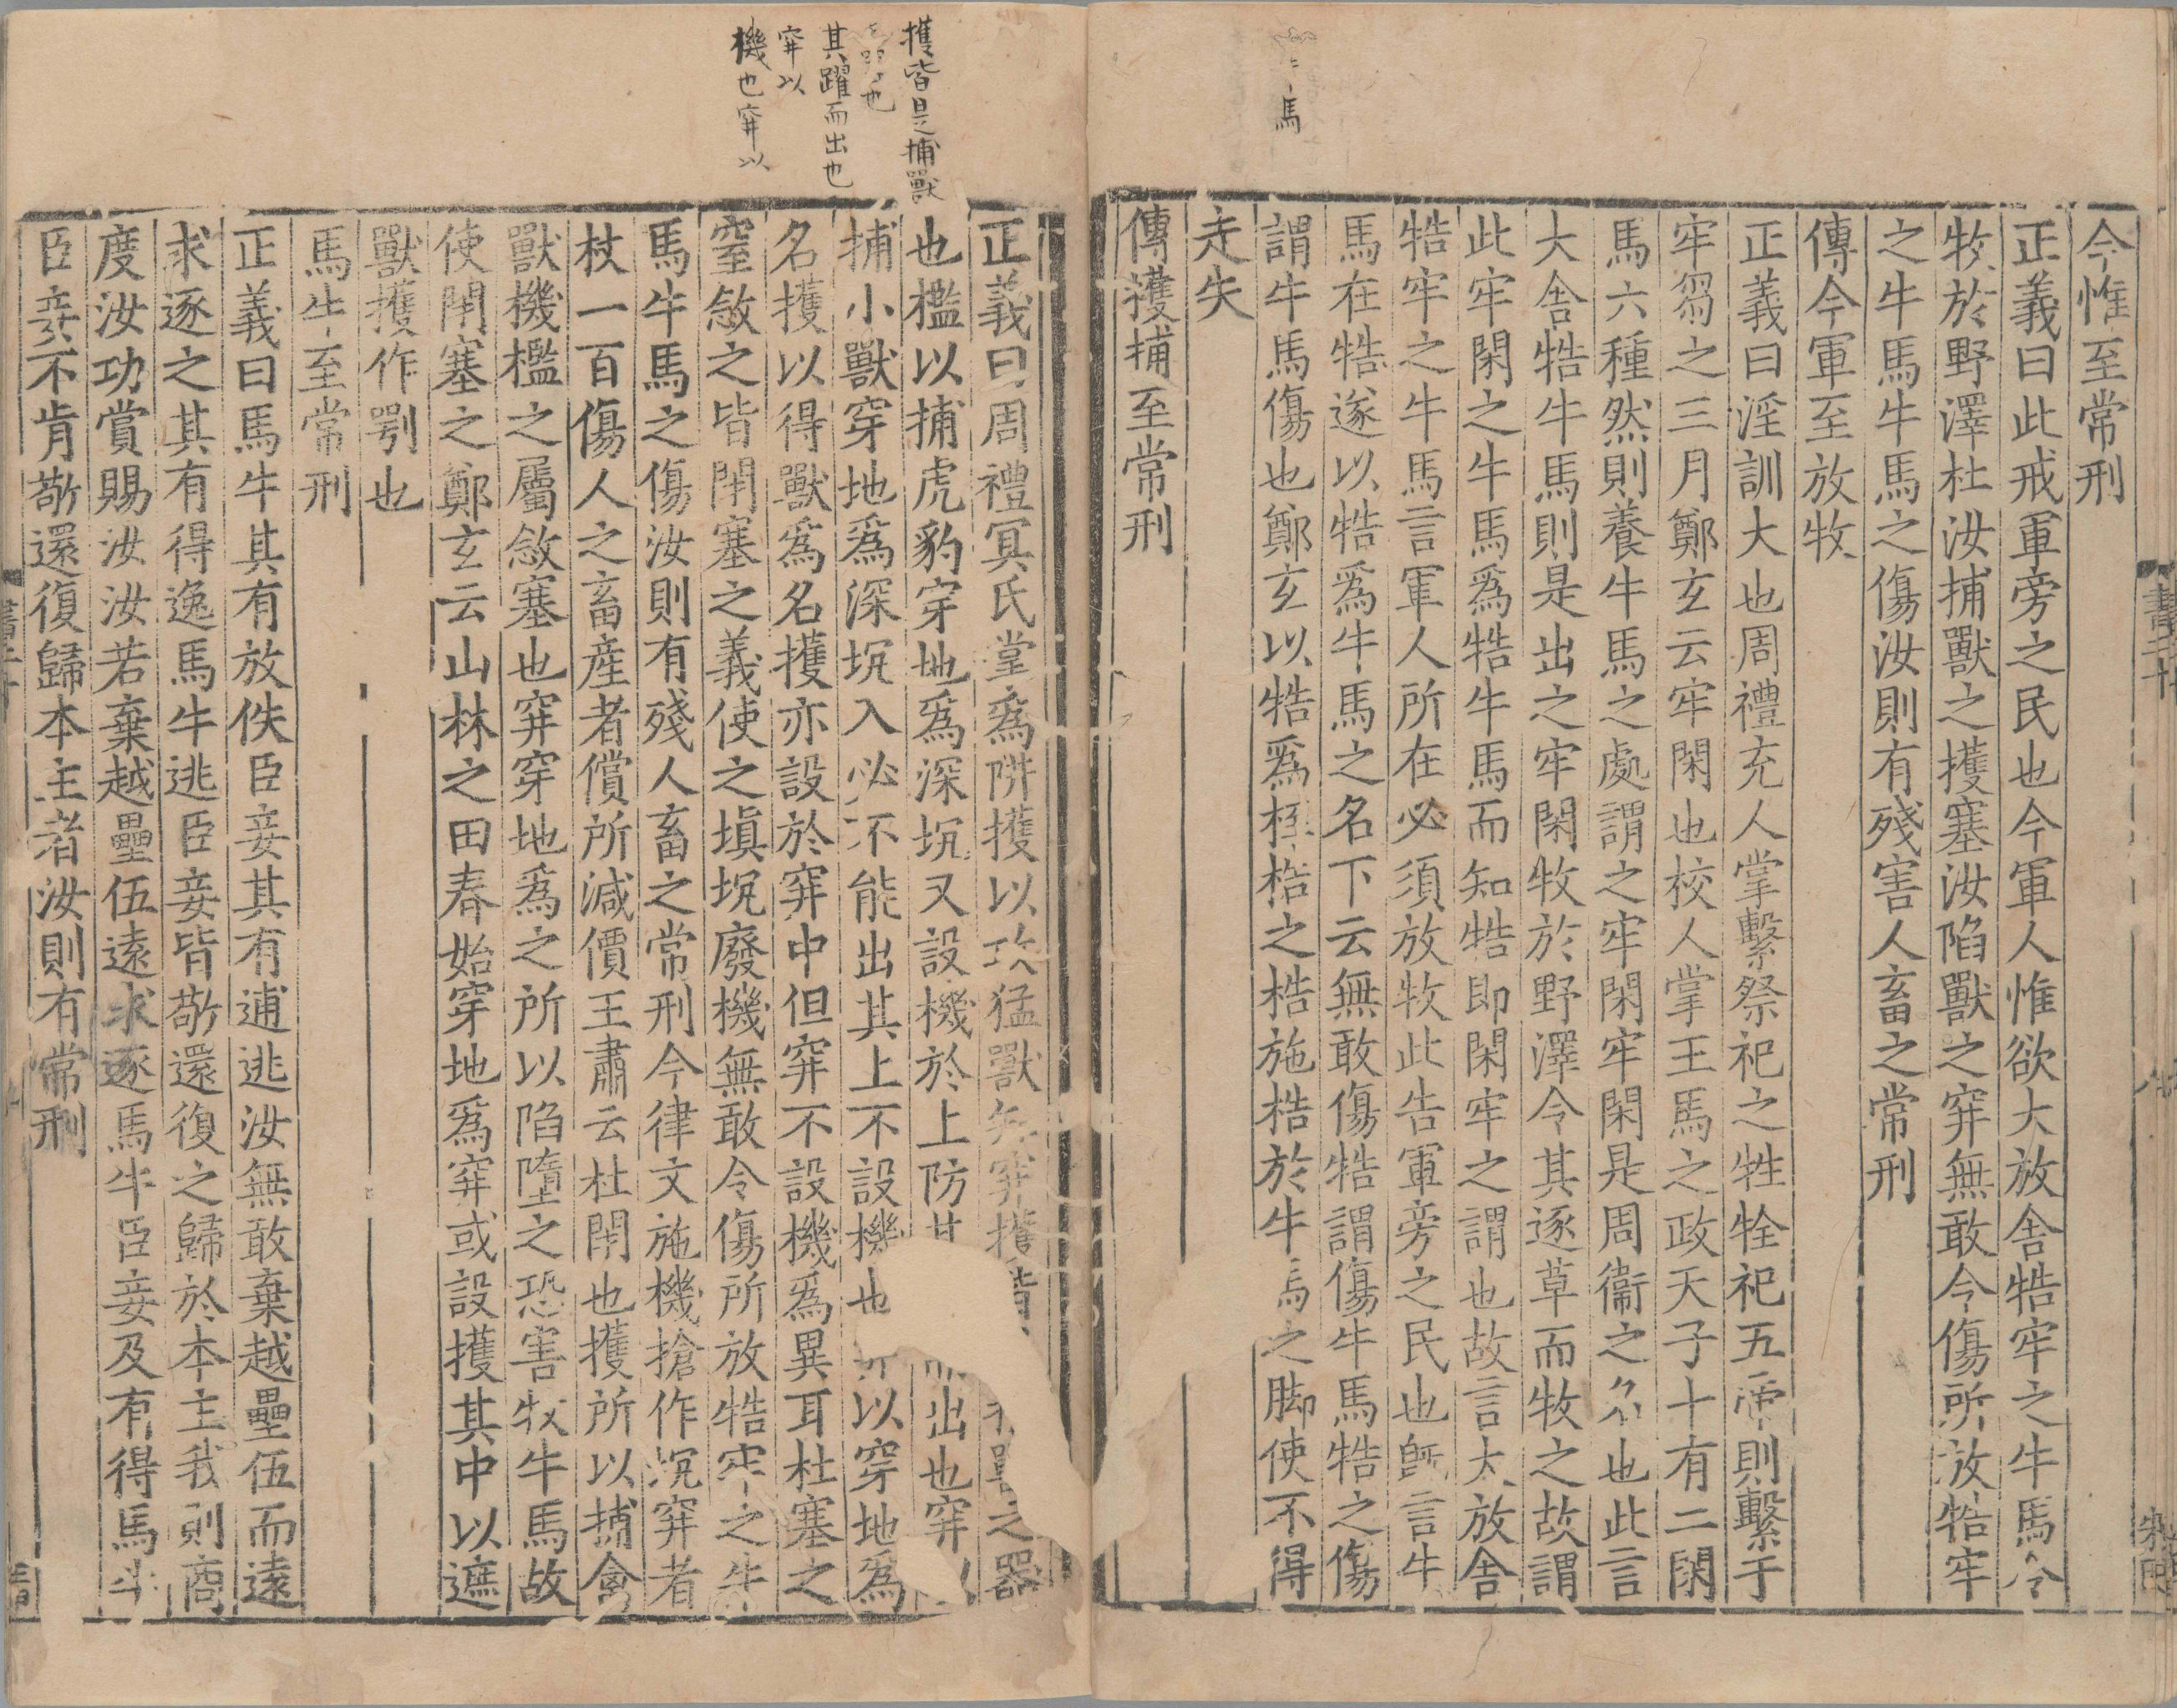 今惟至常刑
正義曰此戒軍旁之民也今軍人惟欲大放舍牿牢之牛馬令
牧於野澤杜汝捕獸之擭塞汝陷獸之穽無敢令傷所放牿牢
之牛馬牛馬之傷汝則有殘害人畜之常刑
傳今軍至放牧
正義曰淫訓大也周禮充人掌繫祭祀之牲牷祀五帝則繫于
牢芻之三月鄭玄云牢閑也校人掌王馬之政天子十有二閑
馬六種然則養牛馬之處謂之牢閑牢閑是周衞之名也此言
大舍牿牛馬則是出之牢閑牧於野澤令其逐草而牧之故謂
此牢閑之牛馬爲牿牛馬而知牿即閑牢之謂也故言大放舍
牿牢之牛馬言軍人所在必須放牧此告軍旁之民也旣言牛
馬在牿遂以牿爲牛馬之名下云無敢傷牿謂傷牛馬牿之傷
謂牛馬傷也鄭玄以牿爲桎梏之梏施梏於牛馬之脚使不得
走失
傳擭捕至常刑
正義曰周禮冥氏掌爲阱擭以攻猛獸知穽擭皆獸之器
也檻以捕虎豹穿地爲深坑又設機於上防其出也穽以
捕小獸穿地爲深坑入必不能出其上不設機也以穿地爲
名擭以得獸爲名擭亦設於穽中但穽不設機爲異耳杜塞之
窒敜之皆閉塞之義使之塡坑廢機無敢令傷所放牿牢之牛
馬牛馬之傷汝則有殘人畜之常刑今律文施機搶作坑穽者
杖一百傷人之畜產者償所減價王肅云杜閉也擭所以捕禽
獸機檻之屬敜塞也穽穿地爲之所以陷墮之恐害牧牛馬故
使閉塞之鄭玄云山林之田春始穿地爲穽或設擭其中以遮
獸擭作㓵也
馬牛至常刑
正義曰馬牛其有放佚臣妾其有逋逃汝無敢棄越壘伍而遠
求逐之其有得逸馬牛逃臣妾皆敬還復之歸於本主我則商
度汝功賞賜汝汝若棄越壘伍遠求逐馬牛臣妾及有得馬牛
臣妾不肯敬還復歸本主者汝則有常刑
書二十
馬
擭皆是捕獸
也
其躍而出也
穽以
機也穽以